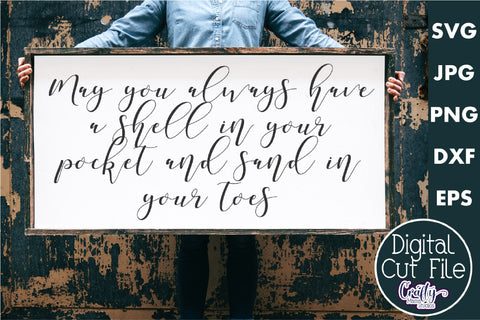 May you always have
a shell in your
pocket and sand in
your toes
SVG
JPG
PNG
DXF
EPS
Digital
Cut File
Crafty